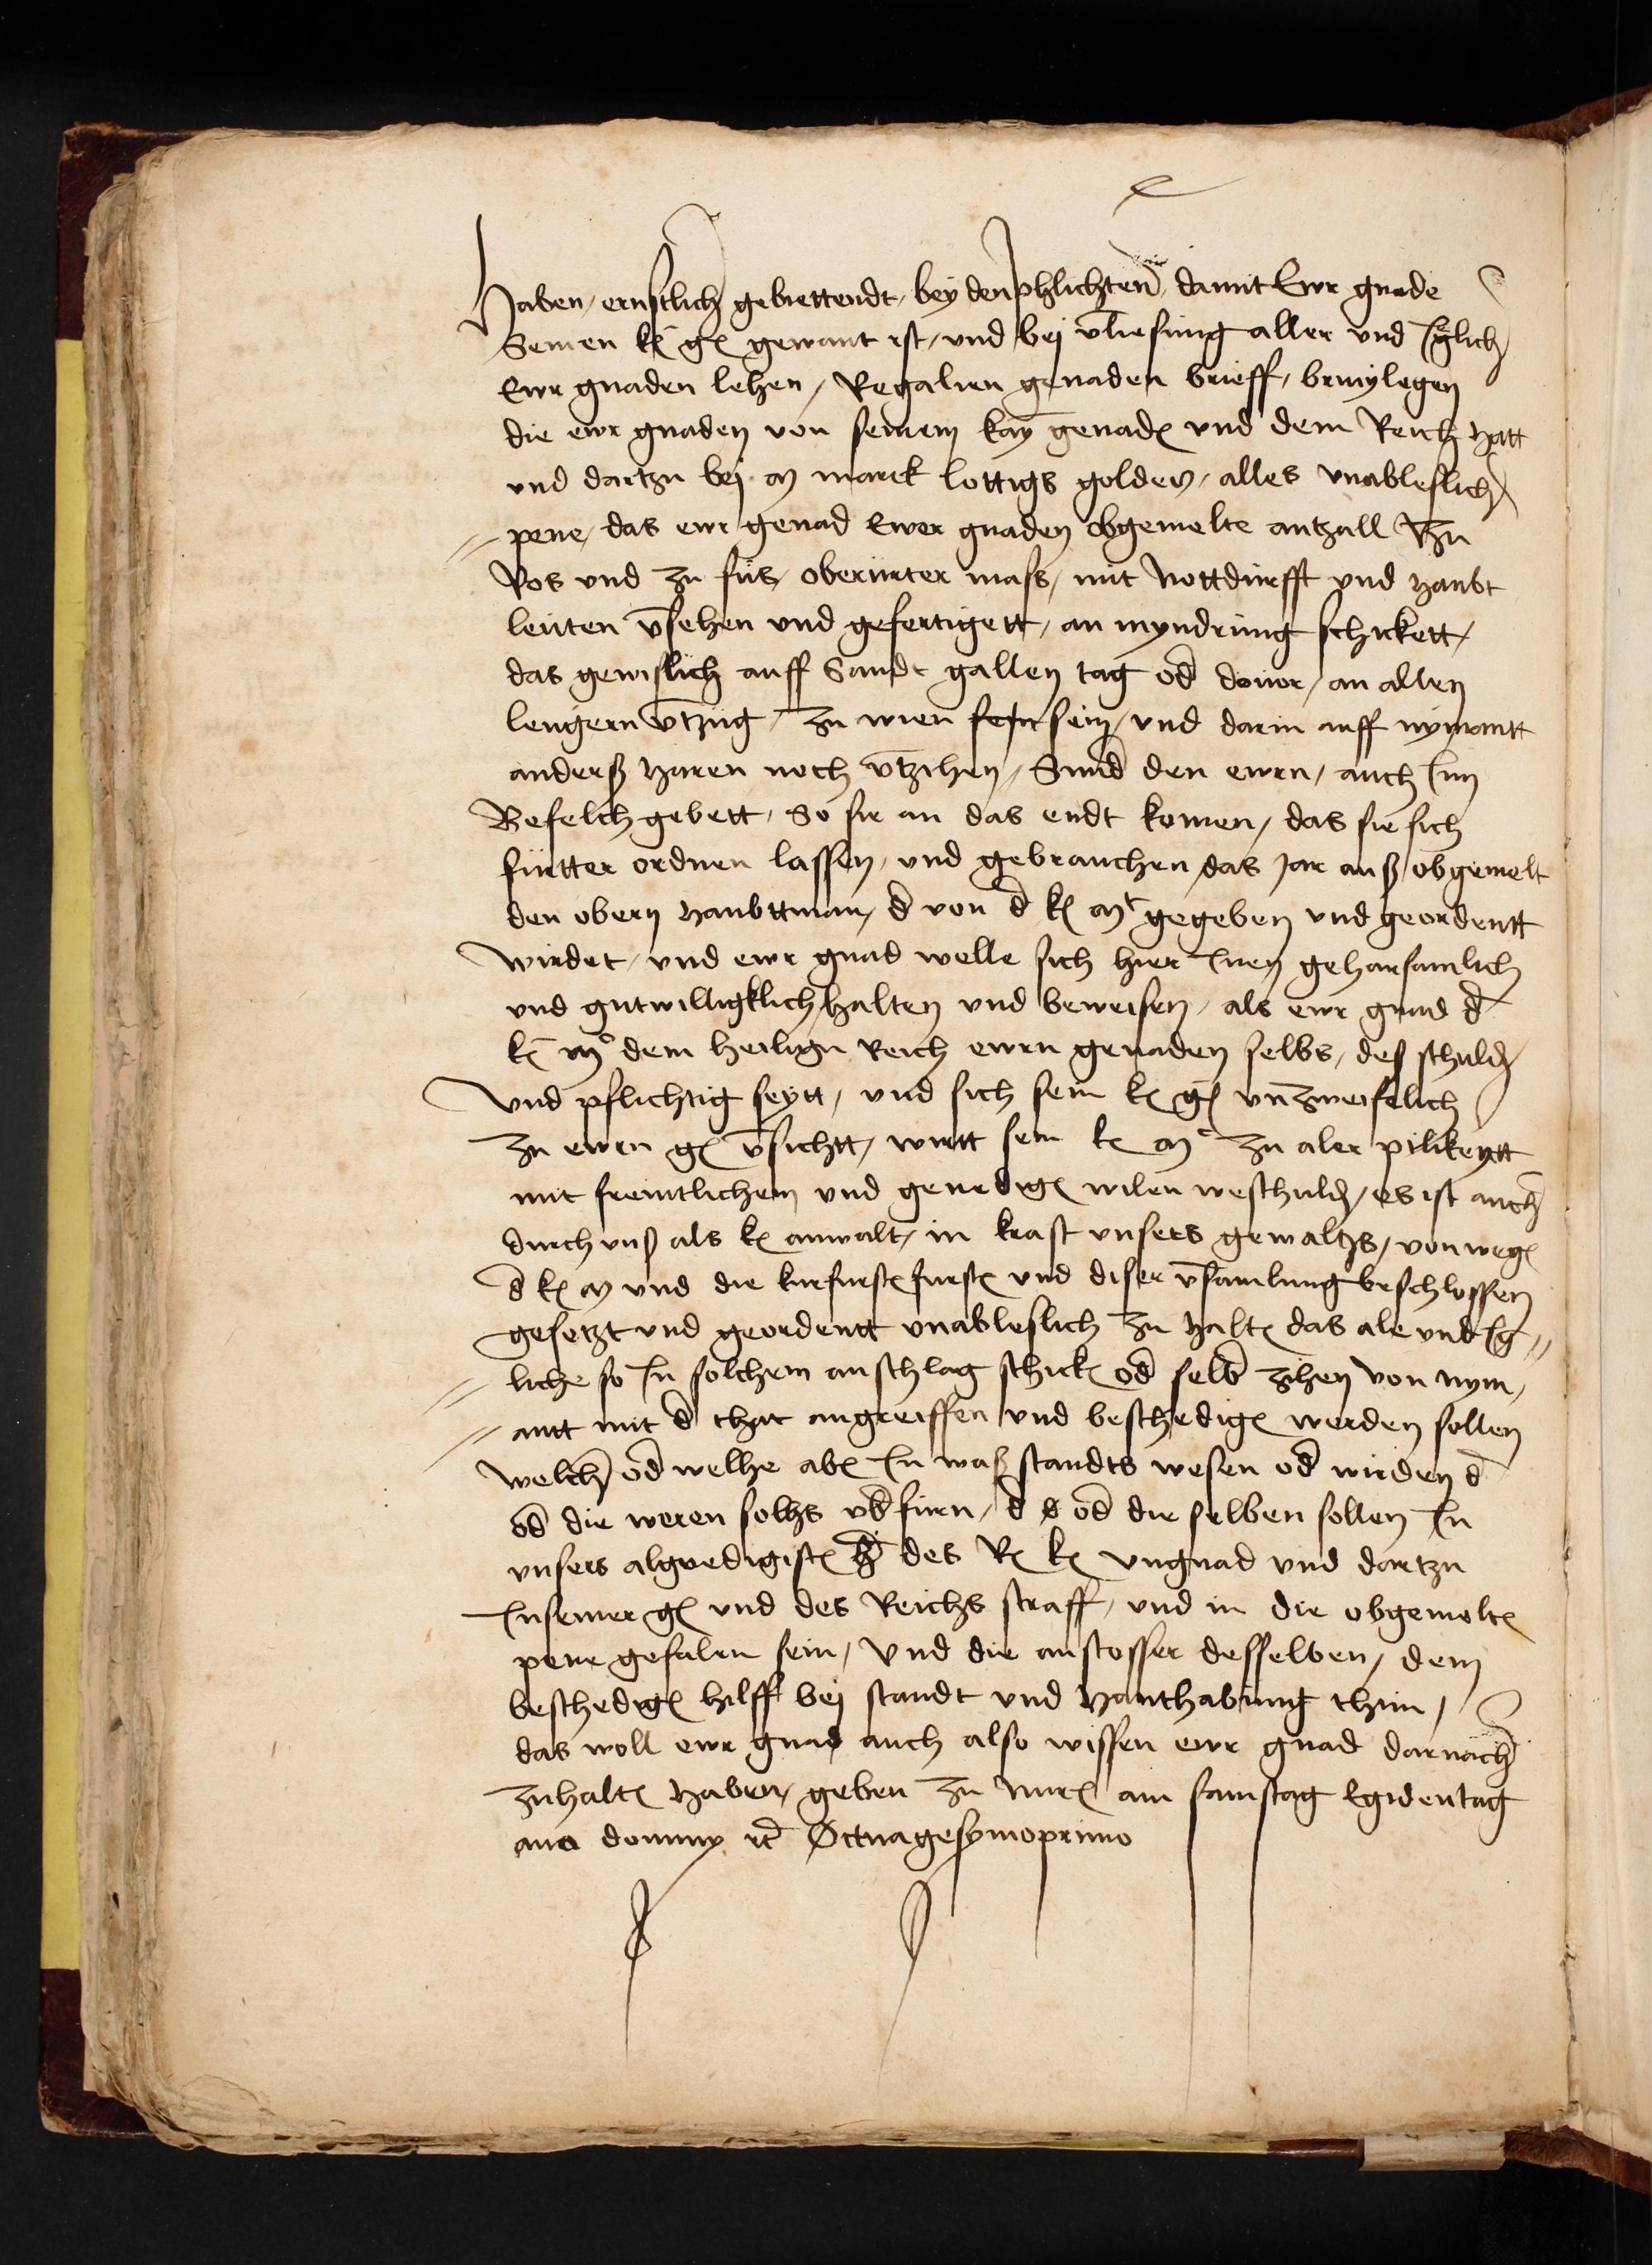 Haben, ernstlich gebiettendt, bey den phlichten, damit Ewr gnade
Seinen k g gewant ist, und bej vliesung aller und Iglich
Ewr gnaden lehen, Regalien genaden brieff, brivylegen
die ewr gnaden von seinem kay genad und dem Reich hatt
und dartzu bej m marck lottigs golden, alles unableslich
pene, das ewr genad Ewer gnaden obgemelte antzall zu
Ros und zu fus, oberurter mass, mit Nottdurfft und haubt
leuten vsehen und gefertigett, an myndrung schickett,
das gewislich auff Sandt gallen tag od douor, an allen
lengern vtzug, zu wien sein, und darin auff nymantt
anderß haren noch vtzihen, Sund den ewrn, auch Inn
Befelch gebett, So sie an das endt komen, das sie sich
furtter ordnen lassen, und gebrauchen, das jar auß obgemelt
den obern haubttman, d von d k mt gegeben und geordentt
wirdet, und ewr gnad welle sich hier Inen gehorsamlich
und gutwilligklich halten und beweisen, als ewr gnad d
k mt dem heilign Reich ewrn genaden selbs, des schuld
Und pflichtig seytt, und sich sein k g unzweifelich
zu ewrn g vsichtt, wirtt sein k mt zu aler pilikeytt
mit freintlichem und genedig wilen weschuld, es ist auch
durch unß als k anwalt, in krafft unsers gewaltzs, von weg
d k m und die kurfurst furst und diser vsamlung beschlossen
gesetzt und geordentt unableslich zu halt das ale und Ig
liche so In solchem anschlag schick od selb zihen von nym
antt mit d that angreiffen und beschedig werden sollen
welch od welhe ab In waß standts wesen od wirden d
od die weren solhs ubfurn, d od die selben sollen In
unsers algnedigist h des R k ungnad und dartzu
In seiner g und des Reichs straff, und in die obgemelt
pene gefalen sein, Und die anstosser desselben, dem
beschedig hilff bej standt und Hanthabung thun,
das woll ewr gnad auch also wissen ewr gnad darnach
zuhalt haben, geben zu Nur am samstag Egidentag
ano dominy rc Octuagesymoprimo